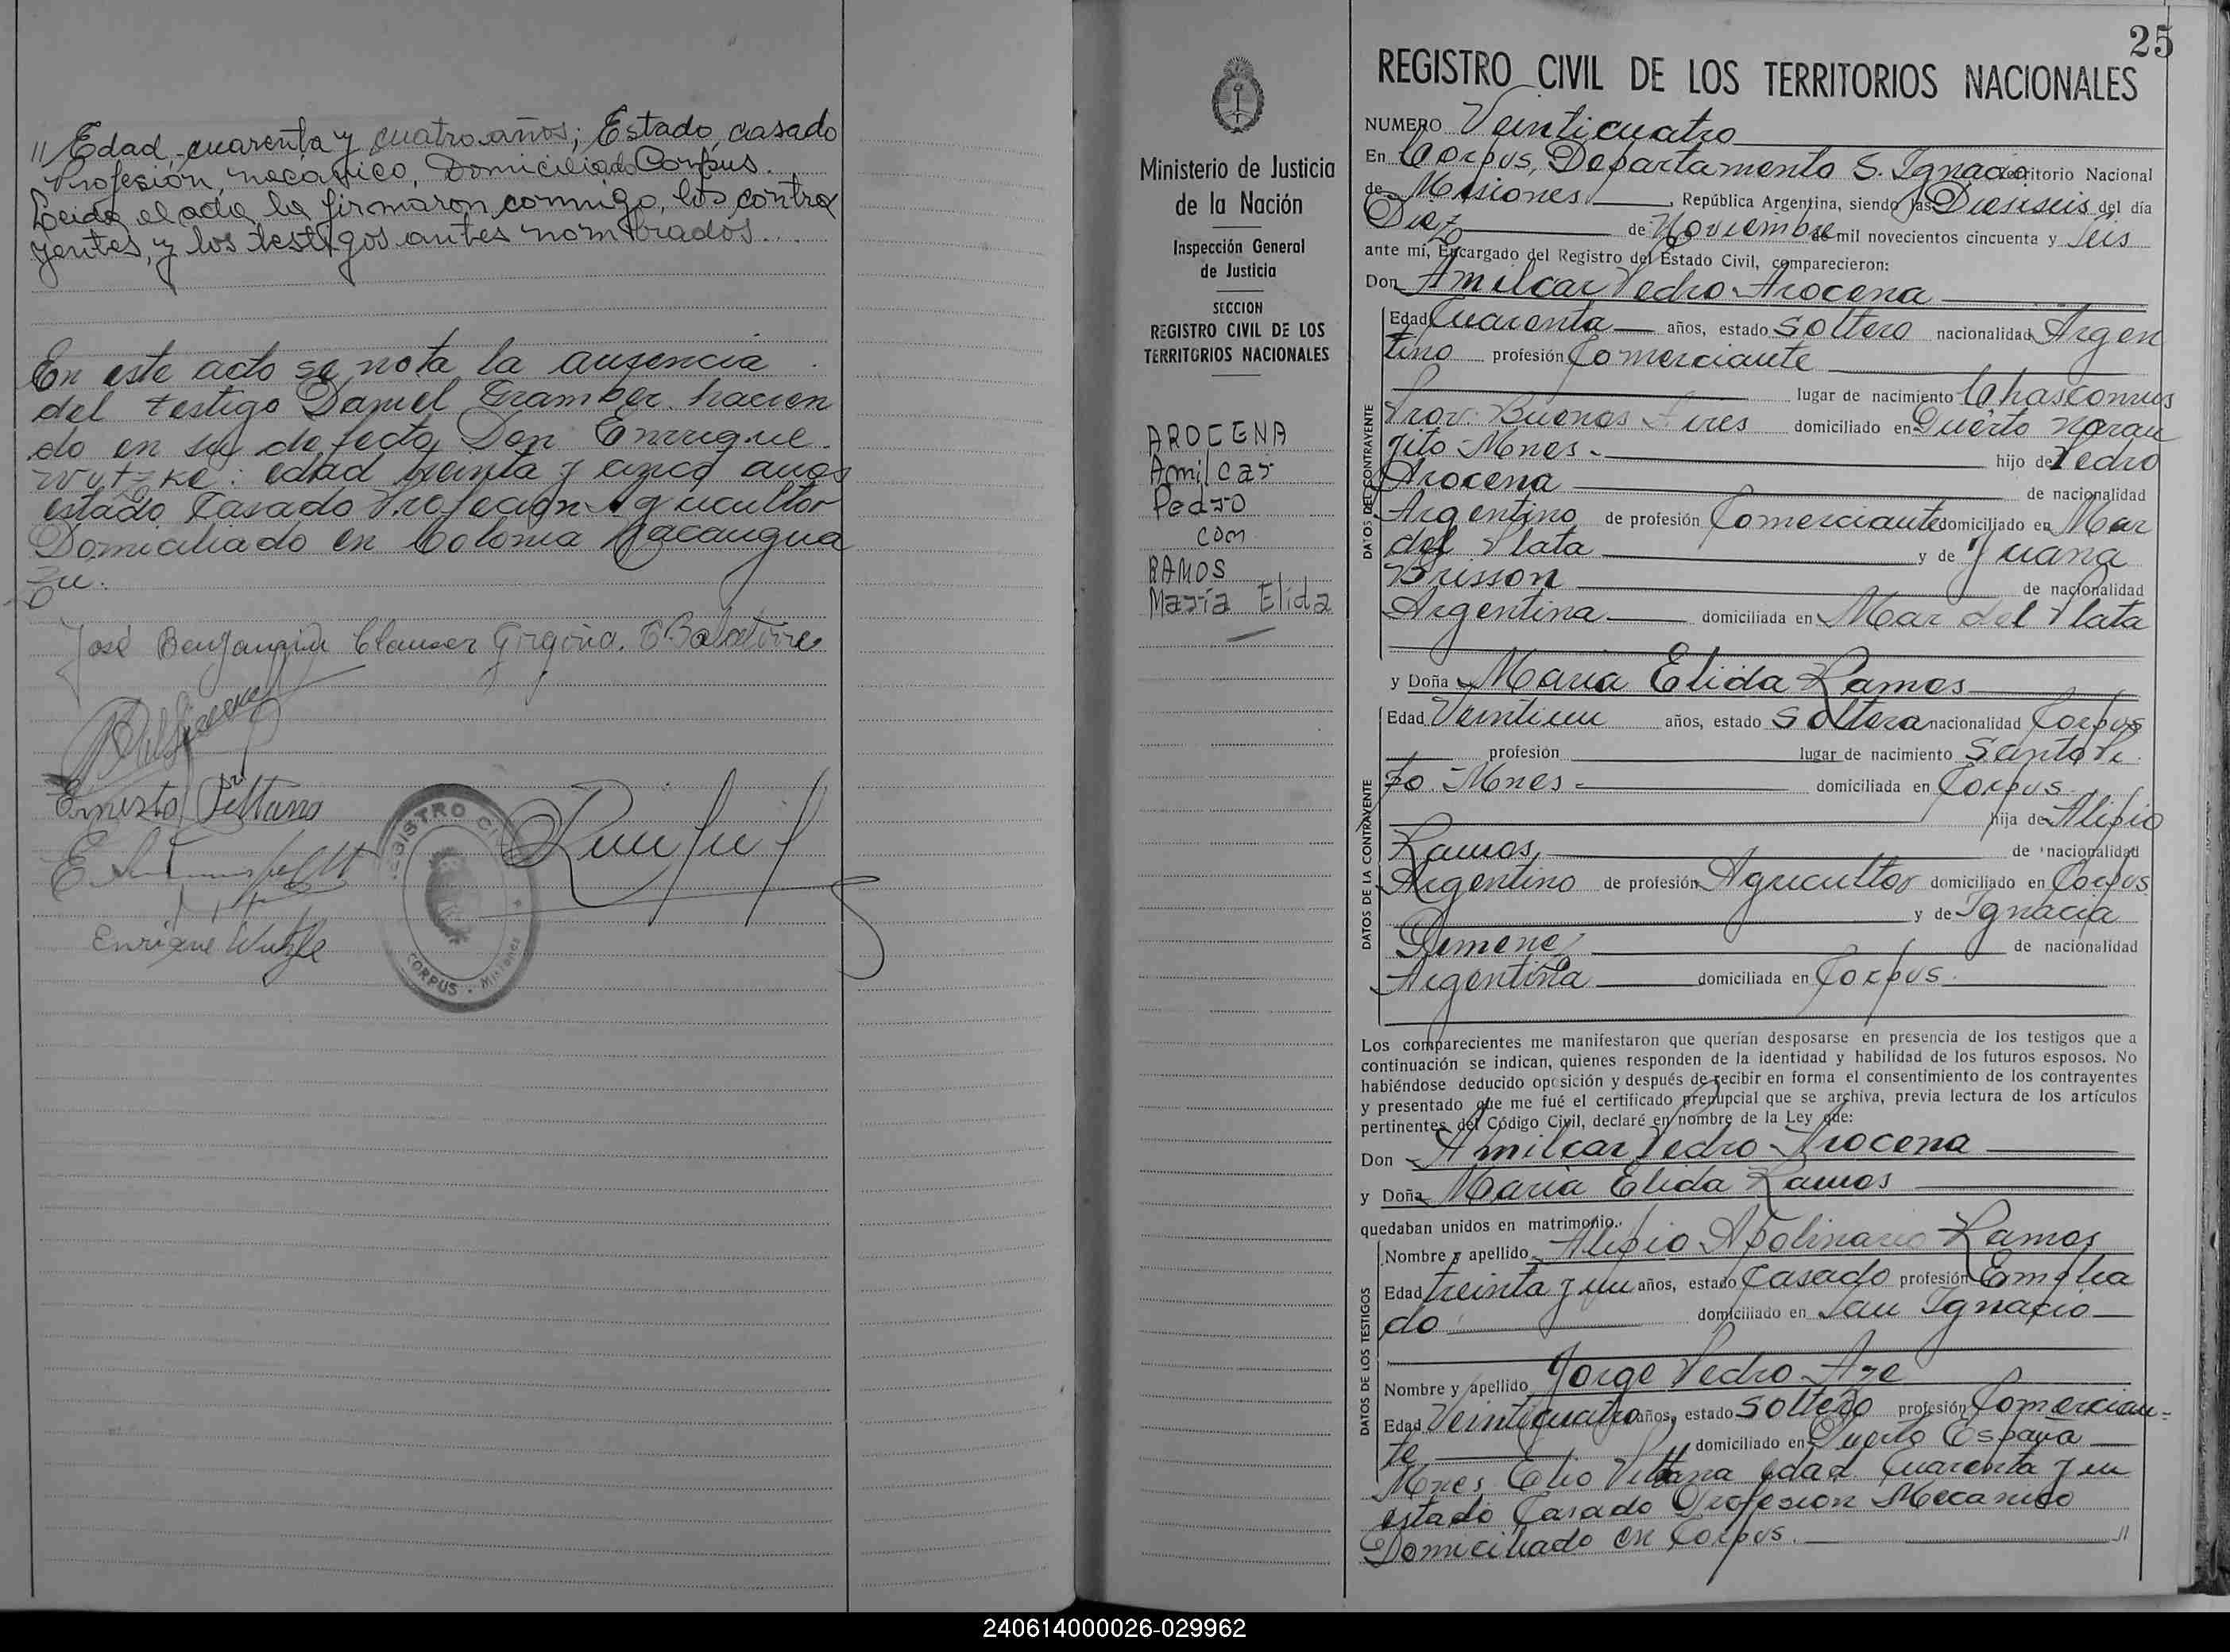 // Edad, cuarenta y cuatro años; Estado, casado
Profesión, mecánico, Domiciliado Corpus.
Leida el acta la firmaron conmigo, los contra
yentes, y los testigos antes nombrados...
En este acto se nota la ausencia
del testigo Daniel Gramber hacien
do en su defecto Don Enrrique
Wutzke: edad treinta y cinco años
estado Casado Profecion Agricultor
Domiciliado en Colonia Ñacangua
zu.
José Benjamin Clauser Girgina. C Balatorre
Ernesto Pittana
Enrique Wutzke
REGISTRO CIVIL
CORPUS - Misiones
Ministerio de Justicia
de la Nación
Inspección General
de Justicia
SECCION
REGISTRO CIVIL DE LOS
TERRITORIOS NACIONALES
AROCENA
Amilcar
Pedro
con
RAMOS
María Elida
25
REGISTRO CIVIL DE LOS TERRITORIOS NACIONALES
NUMERO Veinticuatro
En Corpus, Departamento S. Ignacio Territorio Nacional
de Misiones, República Argentina, siendo las Dieciseis del día
Diez de Noviembre de mil novecientos cincuenta y Seis
ante mí, Encargado del Registro del Estado Civil, comparecieron:
Don Amilcar Pedro Arocena
DATOS DEL CONTRAYENTE
Edad Cuarenta años, estado soltero nacionalidad Argen
tino profesión Comerciante
lugar de nacimiento Chascomus
Prov. Buenos Aires domiciliado en Puerto Naran
jito Mnes - hijo de Pedro
Arocena de nacionalidad
Argentino de profesión Comerciante domiciliado en Mar
del Plata y de Juana
Brisson de nacionalidad
Argentina domiciliada en Mar del Plata
y Doña Maria Elida Ramos
DATOS DE LA CONTRAYENTE
Edad Veintiun años, estado soltera nacionalidad Corpus
profesión lugar de nacimiento Santo Pi
po Mnes - domiciliada en Corpus.
hija de Alipio
Ramos de nacionalidad
Argentino de profesión Agricultor domiciliado en Corpus
y de Ignacia
Gimenez de nacionalidad
Argentina domiciliada en Corpus.
Los comparecientes me manifestaron que querían desposarse en presencia de los testigos que a
continuación se indican, quienes responden de la identidad y habilidad de los futuros esposos. No
habiéndose deducido oposición y después de recibir en forma el consentimiento de los contrayentes
y presentado que me fué el certificado prenupcial que se archiva, previa lectura de los artículos
pertinentes del Código Civil, declaré en nombre de la Ley que:
Don Amilcar Pedro Arocena
y Doña Maria Elida Ramos
quedaban unidos en matrimonio.
DATOS DE LOS TESTIGOS
Nombre y apellido Alipio Apolinario Ramos
Edad treinta y un años, estado Casado profesión Emplea
do domiciliado en San Ignacio
Nombre y apellido Jorge Pedro Aze
Edad Veinticuatro años, estado soltero profesión Comercian=
te domiciliado en Puerto España
Mnes Elio Pittana edad Cuarenta y un
estado Casado Profesion Mecanico
Domiciliado en Corpus. //
240614000026-029962